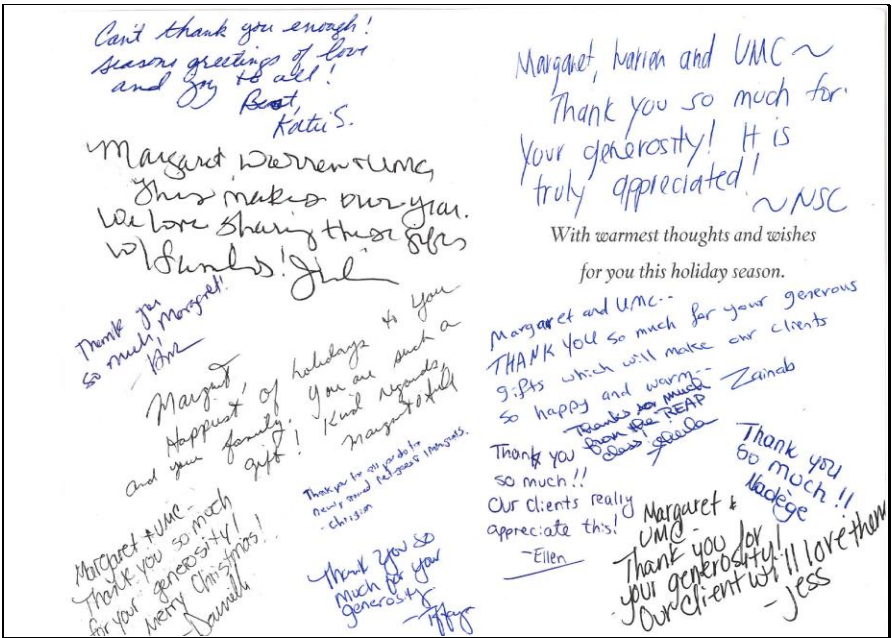 Can't thank you enough!
seasons greetings of love
and joy to all!
Best,
Katie S.
Margaret Warren + UMC,
This makes our year.
We love sharing these gifts
w/ families!
Thank you
so much, Margaret!
Margaret,
Happiest of holidays to you
and your family. You are such a
gift! Kind regards,
Margaret
Thank you for all you do for
new and refugees immigrants.
- Christian
Margaret + UMC-
Thank you so much
for your generosity!
Merry Christmas!
- Danielle
Thank you so
much for your
generosity
- Tiffany
Margaret, Warren and UMC ~
Thank you so much for
your generosity! It is
truly appreciated!
~ NSC
With warmest thoughts and wishes
for you this holiday season.
Margaret and UMC --
THANK YOU so much for your generous
gifts which will make our clients
so happy and warm --
Zainab
Thanks so much
from the REAP
class! Sheila
Thank you
so much!!
Our clients really
appreciate this!
- Ellen
Thank you
so much!!
Nadège
Margaret &
UMC -
Thank you for
your generosity!
Our client will love them
- Jess